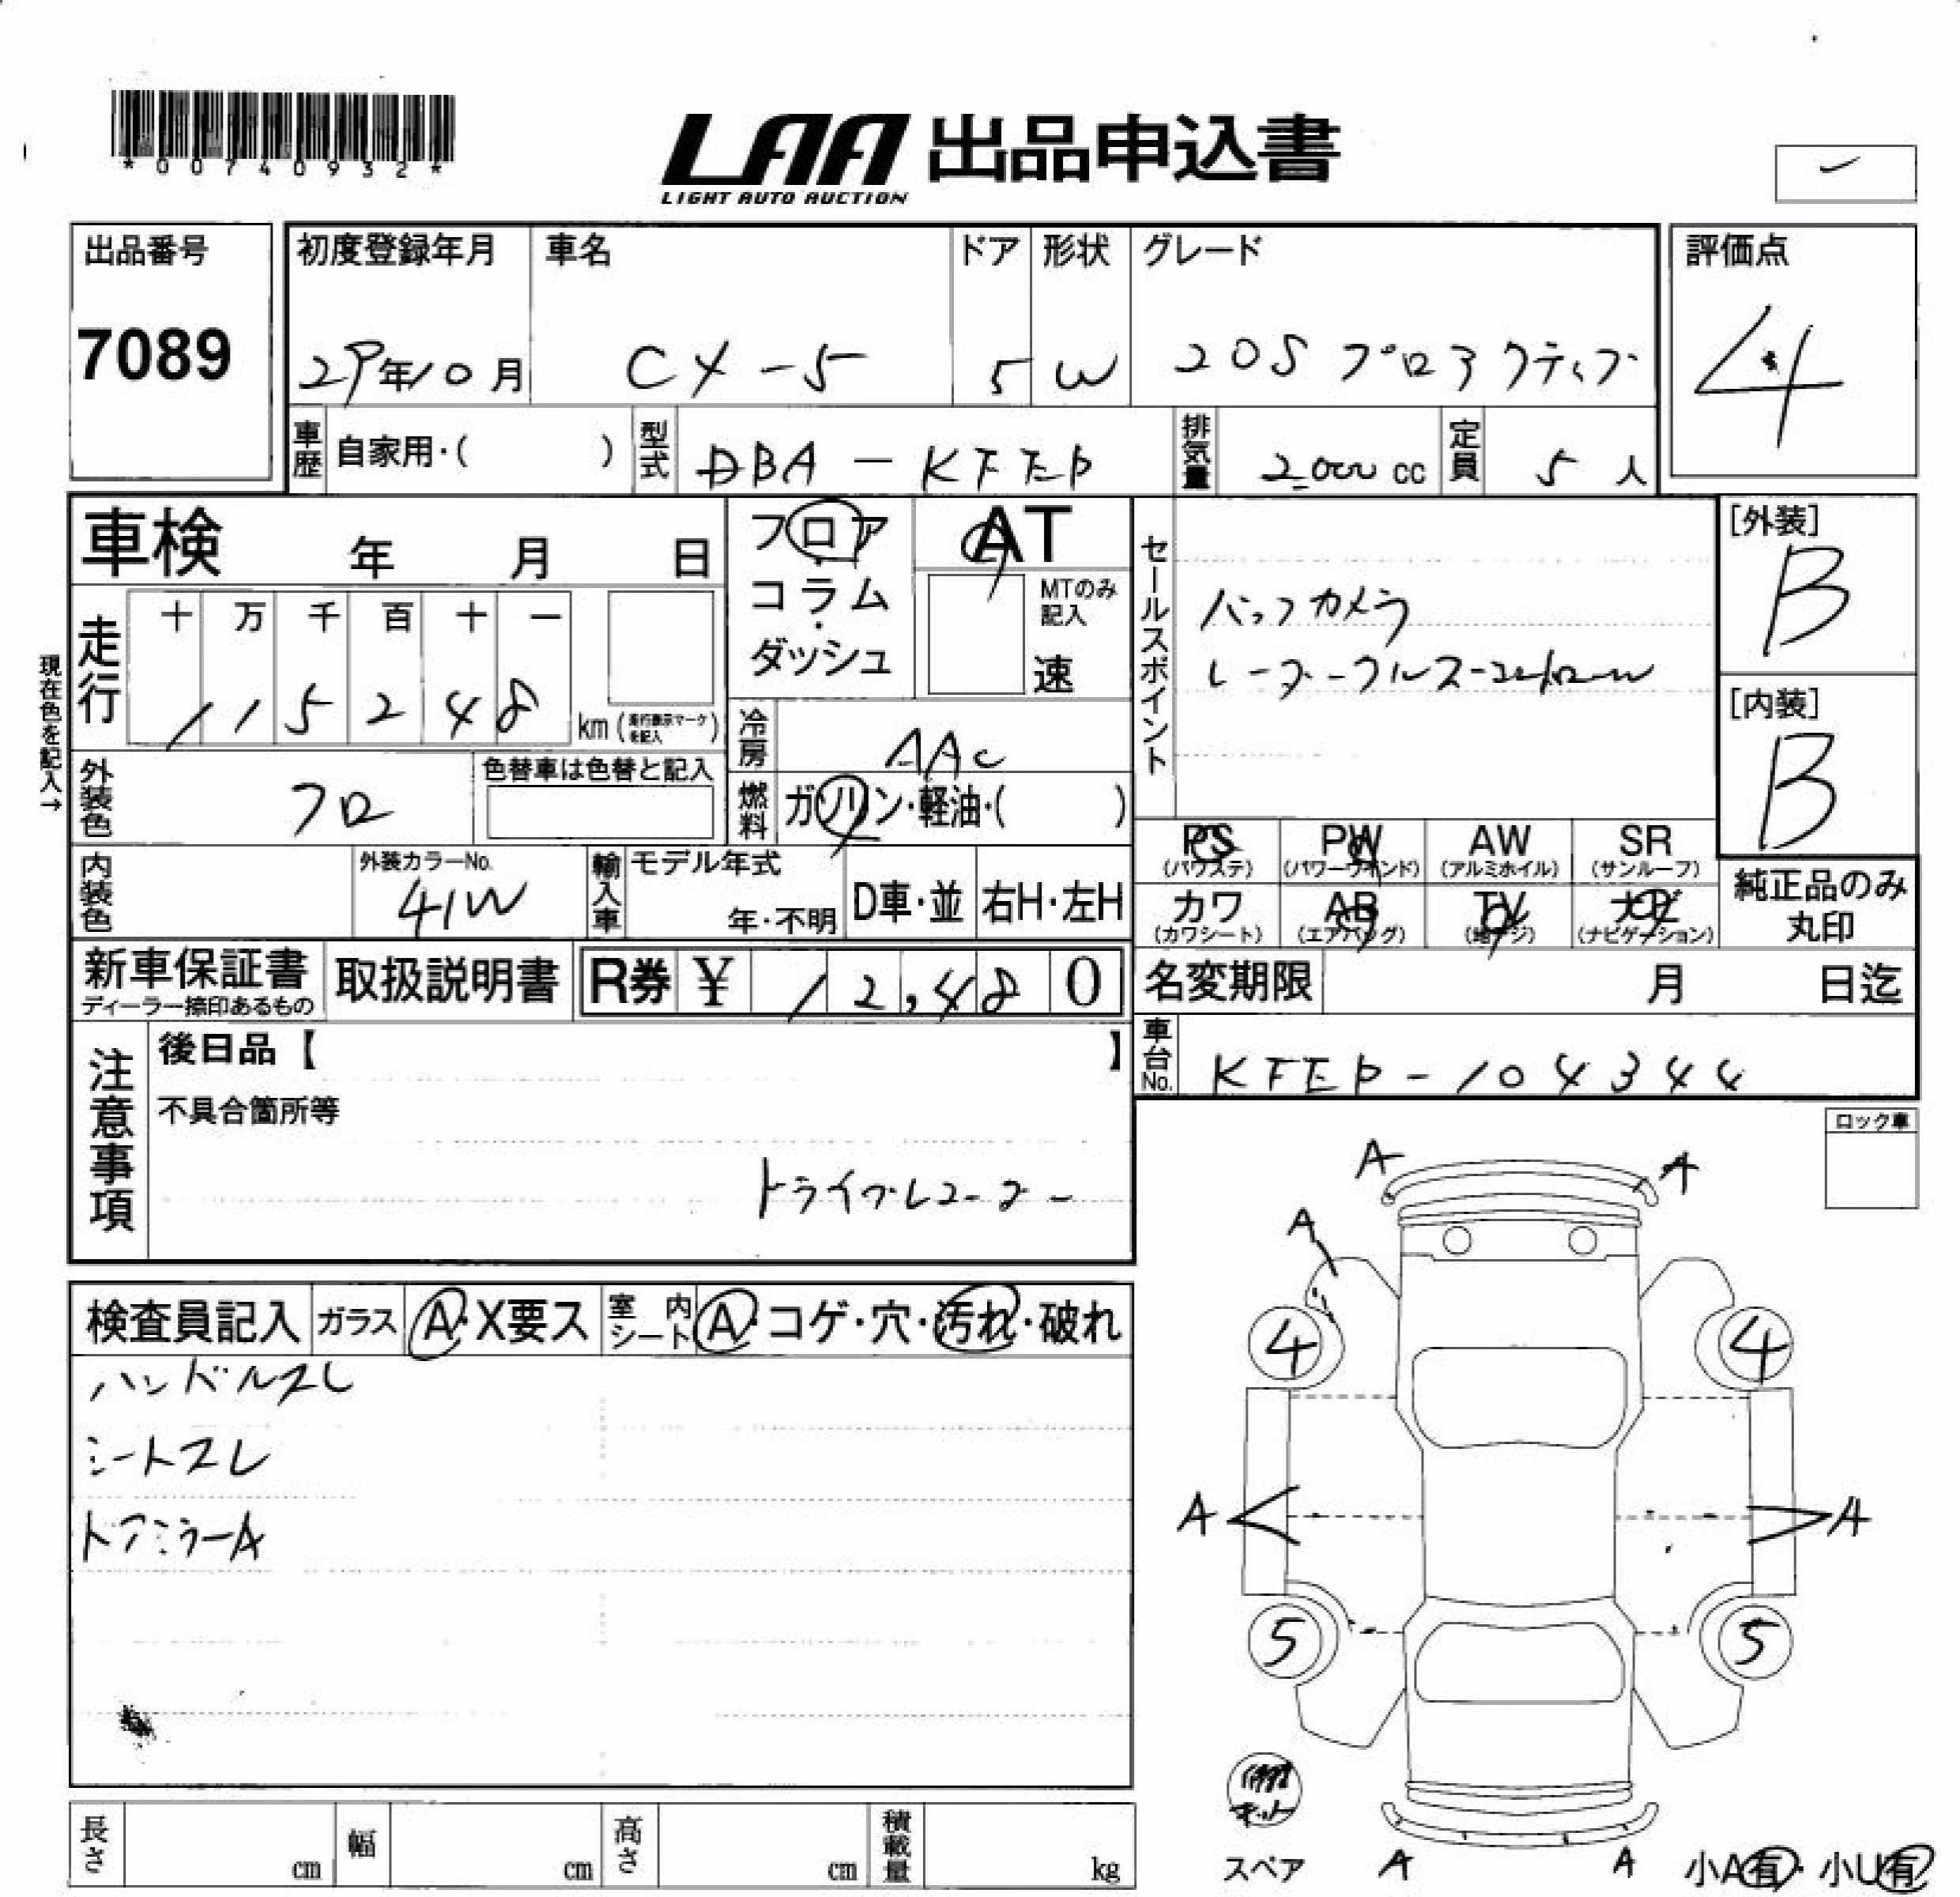 *00740932*
LAA 出品申込書
LIGHT AUTO AUCTION
出品番号
7089
初度登録年月
29年10月
車名
CX-5
ドア
5
形状
W
グレード
20S プロアクティブ
評価点
4
車歴
自家用・( )
型式
DBA-KFEP
排気量
2000 cc
定員
5人
車検 年 月 日
フロア・コラム・ダッシュ
AT
MTのみ記入
速
セールスポイント
バックカメラ
[外装]
B
[内装]
B
現在色を記入→
走行
十 万 千 百 十 一
115248
km (走行表示マークを記入)
冷房
AAC
外装色
クロ
色替車は色替と記入
燃料
ガソリン・軽油・( )
PS (パワステ)
PW (パワーウインド)
AW (アルミホイル)
SR (サンルーフ)
カワ (カワシート)
AB (エアバッグ)
TV (地デジ)
ナビ (ナビゲーション)
純正品のみ丸印
内装色
外装カラーNo.
41W
輸入車
モデル年式
年・不明
D車・並
右H・左H
新車保証書
ディーラー捺印あるもの
取扱説明書
R券 ¥ 12,480
名変期限 月 日迄
車台No.
KFEP-104344
注意事項
後日品【 】
不具合箇所等
ドライブレコーダー
ロック車
検査員記入
ガラス
A・X要ス
室内シート
A・コゲ・穴・汚れ・破れ
ハンドルスレ
シートスレ
ドアミラーA
A
A
A
4
4
A
A
5
5
スペア
A
A
小A有・小U有
長さ cm
幅 cm
高さ cm
積載量 kg